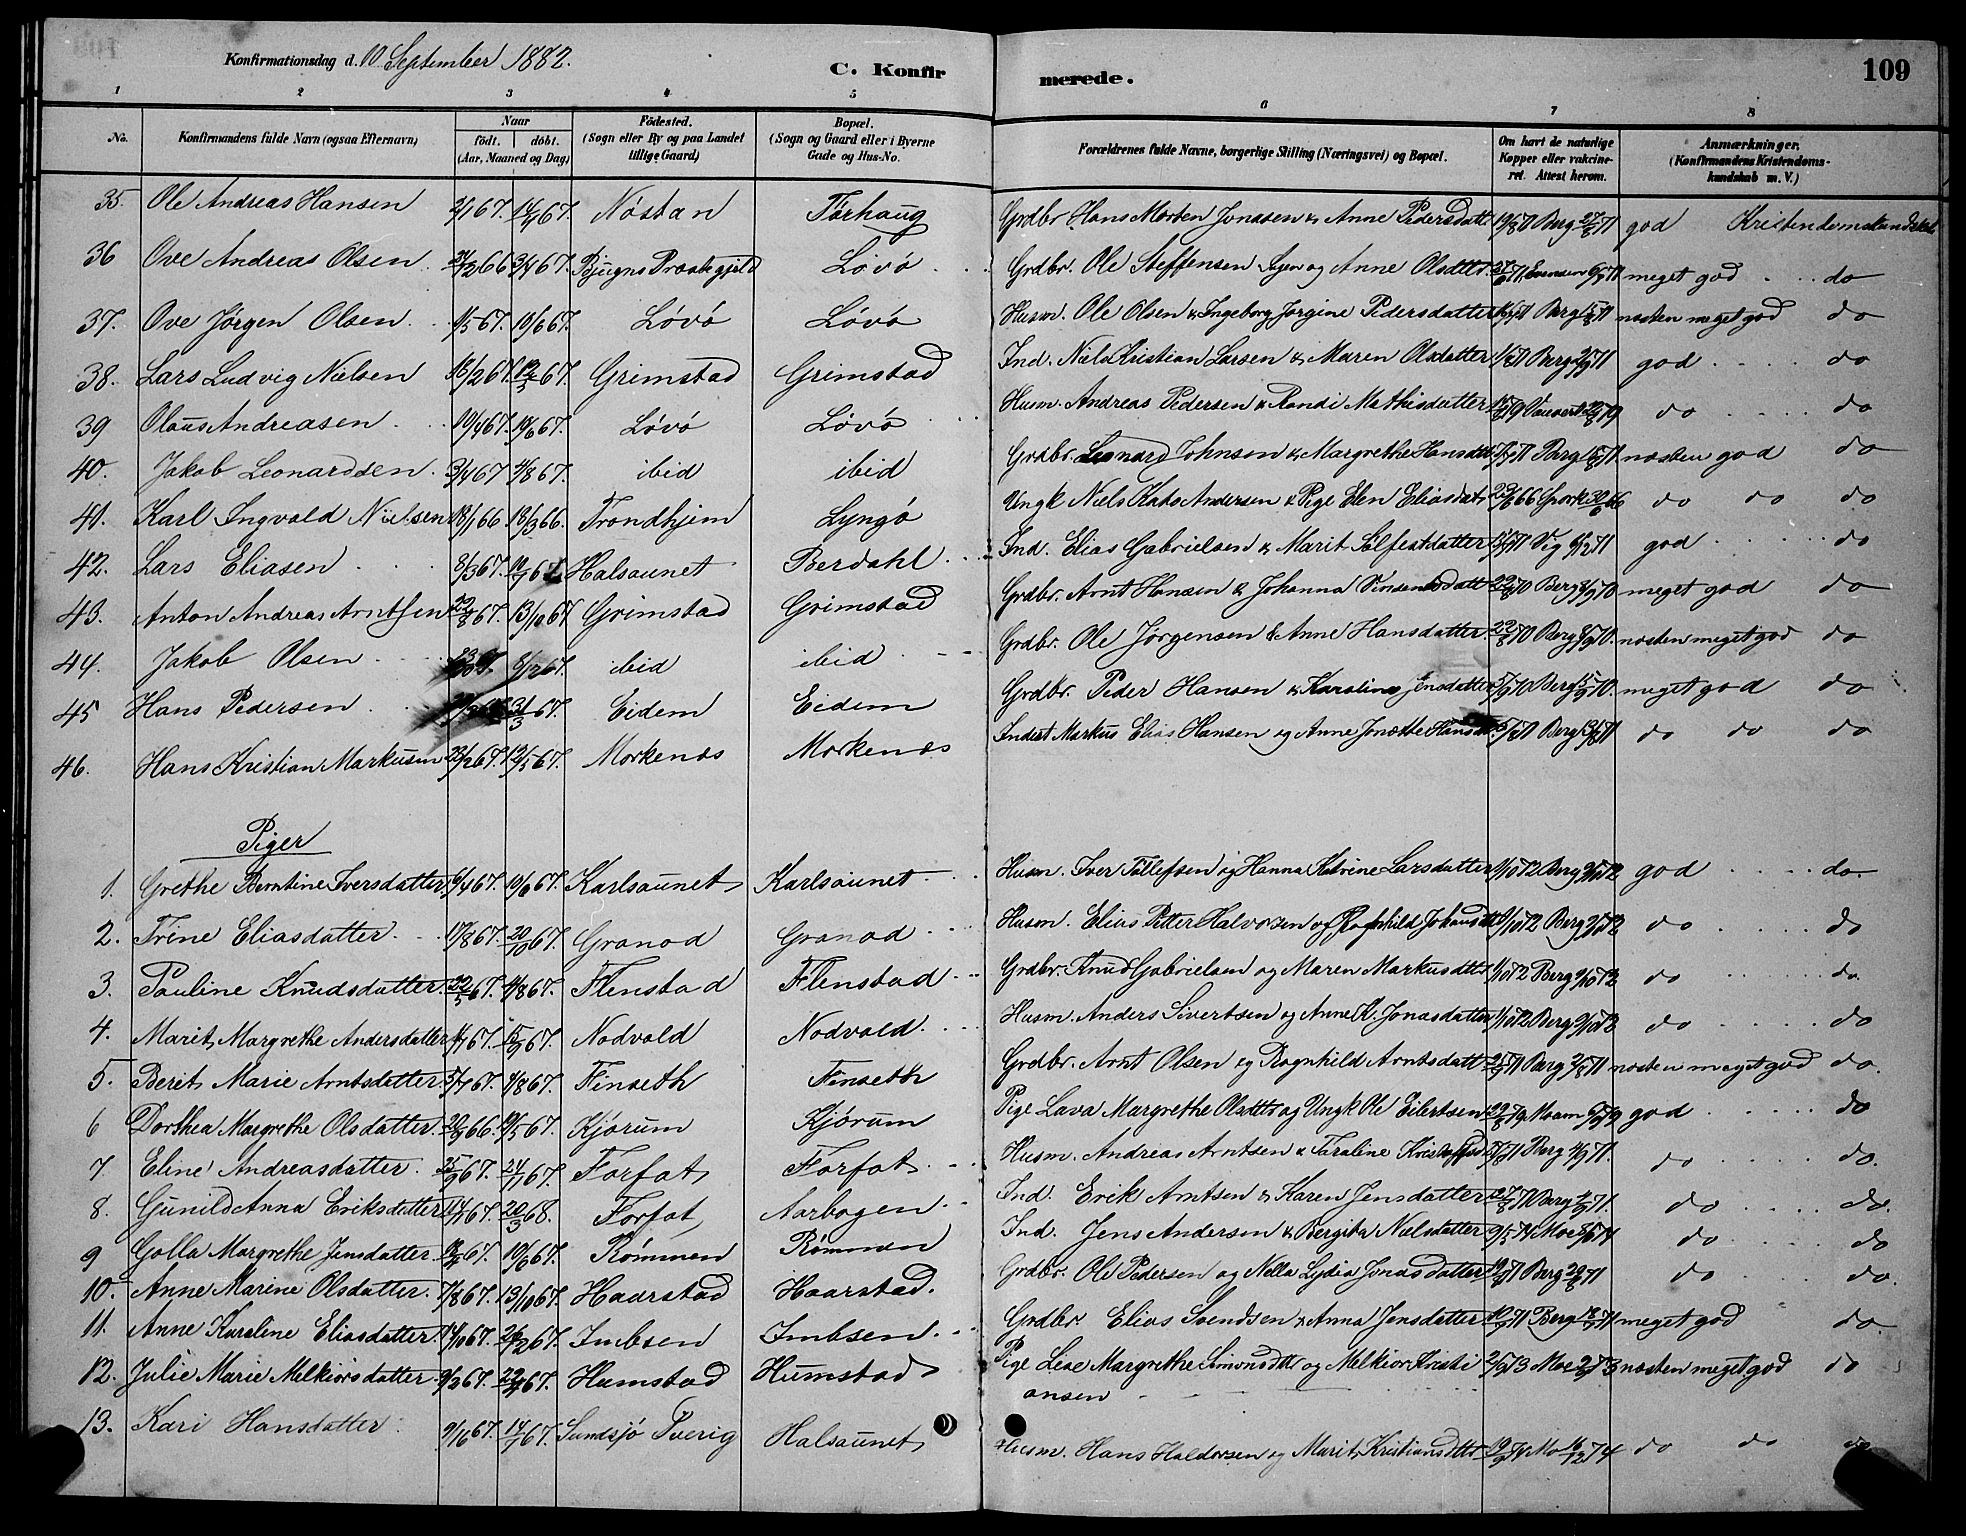 Konfirmationsdag d. 10 September 1882.
C. Konfirmerede.
109
1 2 3 4 5 6 7 8
No. Konfirmandens fulde Navn (ogsaa Efternavn) Naar født. døbt. (Aar, Maaned og Dag) Fødested. (Sogn eller By og paa Landet tillige Gaard) Bopæl. (Sogn og Gaard eller i Byerne Gade og Hus-No. Forældrenes fulde Navne, borgerlige Stilling (Næringsvei) og Bopæl. Om havt de naturlige Kopper eller vakcineret. Attest herom. Anmærkninger. (Konfirmandens Kristendomskundskab m. V.)
35. Ole Andreas Hansen 2/1 67. 14/4 67. Nøstan Tørhaug Grdbr. Hans Morten Jonasen & Anne Pedersdatt 19/8 70 Berg 27/8 71 god Kristendomskundskab
36 Ove Andreas Olsen 24/12 66 3/4 67. Bjugns Præstegjeld Løvø Grdbr. Ole Steffensen og Anne Olsdttr. meget god do
37. Ove Jørgen Olsen 1/5 67. 10/6 67. Løvø Løvø Husm. Ole Olsen & Ingeborg Jørgine Pedersdatter Berg næsten meget god do
38. Lars Ludvig Nielsen 16/2 67. 12/5 67. Grimstad Grimstad Ind. Niels Kristian Larsen & Maren Olsdatter Berg god do
39 Olaus Andreasen 10/4 67. 10/6 67. Løvø Løvø Husm. Andreas Pedersen & Randi Mathisdatter do do
40. Jakob Leonardsen 3/4 67 4/8 67. ibid ibid Grdbr. Leonard Johnsen & Margrethe Hansdatt Berg næsten god do
41. Karl Ingvald Nielsen 18/1 66. 18/3 66. Trondhjem Lyngø Ungk Niels Andersen & Pige Elen Eliasdatr do do do
42. Lars Eliasen 8/3 67. Halsaunet Berdahl Ind. Elias Gabrielsen & Marit Sølfestdatter Vig god do
43. Anton Andreas Arntsen 22/8 67. 13/10 67 Grimstad Grimstad Grdbr. Arnt Hansen & Johanna 22/8 70 Berg 8/9 70 meget god do
44. Jakob Olsen 8/12 67. ibid ibid Grdbr. Ole Jørgensen & Anne Hansdatter. 22/8 70 Berg 8/9 70. næsten meget god do
45 Hans Pedersen 31/3 67. Eidem Eidem Grdbr. Peder Hansen & Karoline Jensdatter Berg meget god do
46. Hans Kristian Markusen 23/2 67. 12/5 67. Morkenæs Morkenæs Inderst Markus Elias Hansen og Anne Jonette Hansdt Berg do do do
Piger
1. Grethe Berntine Iversdatter 6/4 67. 10/6 67. Karlsaunet Karlsaunet Husm. Iver Tøllefsen og Hanna Katrine Larsdatter Berg god do.
2. Trine Eliasdatter 17/8 67. 20/10 67. Granød Granød Husm. Elias Petter Halvorsen og Ragnhild Johansdtt Berg do do
3. Pauline Knudsdatter 22/5 67. 4/8 67. Flenstad Flenstad Grdbr. Knud Gabrielsen og Maren Markusdtt. Berg do do.
4. Marit Margrethe Andersdatter 4/7 67. 15/9 67. Nødvold Nødvold Husm. Anders Sivertsen og Anne K. Jonasdatter Berg do do
5. Berit Marie Arntsdatter. 5/7 67. 4/8 67. Finseth Finseth Grdbr. Arnt Olsen og Ragnhild Arntsdatt Berg næsten meget god do.
6 Dorthea Margrethe Olsdatter. 21/9 66. 19/5 67. Kjørum Kjørum Pige Lava Margrethe Olsdttr og Ungk Ole Eilertsen god do
7. Eline Andreasdatter 25/9 67. 24/11 67. Forfot Forfot Husm. Andreas Arntsen & Karoline Berg do do.
8. Gunild Anna Eriksdatter 20/3 68. Forfot Aarbogen Ind. Erik Arntsen & Karen Jensdatter Berg do do.
9 Golla Margrethe Jensdatter. 10/6 67. Rømmen Rømmen Ind. Jens Andersen & Bergita Nielsdatter Moe do do
10. Anne Marine Olsdatter. 7/8 67. 13/10 67. Haarstad Haarstad. Grdbr. Ole Pedersen og Nella Lydia Jonasdatter Berg do do.
11. Anne Karoline Eliasdatter. 26/12 67. Imbsen Imbsen. Grdbr. Elias Svendsen & Anna Jensdatter Berg meget god do.
12. Julie Marie Melkiorsdatter. 9/2 67. 22/4 67. Humstad Humstad Pige Lise Margrethe Simonsdttr og Melkior Kristi Moe næsten meget god do
ansen
13. Kari Hansdatter 14/7 67. Sundsjø Sverig Halsaunet Husm. Hans Haldorsen og Marit Kristiansdttr Mo do do do